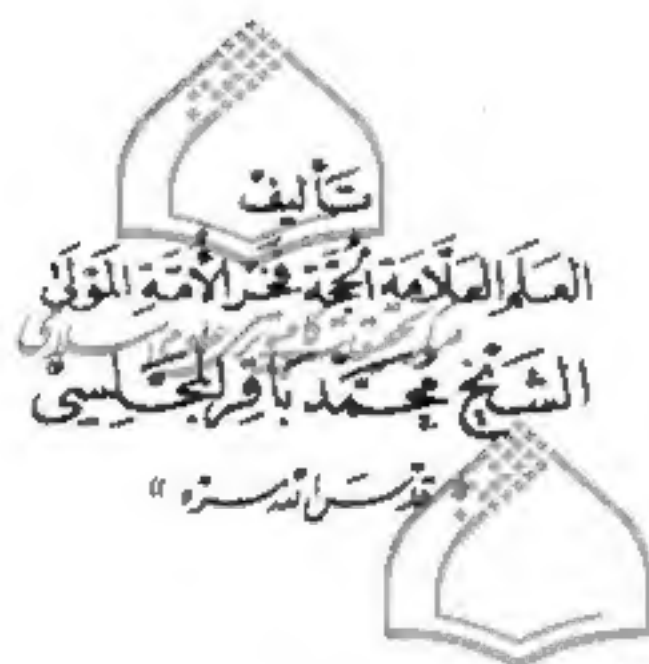 تَأليفُ
العَلَمِ العَلاَّمَةِ الحُجَّةِ فَخْرِ الأُمَّةِ المَوْلىٰ
مرکز تحقیقات کامپیوتری علوم اسلامی
الشَّيْخ مُحَمَّد بَاقِر المَجْلِسِي
« قدّس الله سرّه »